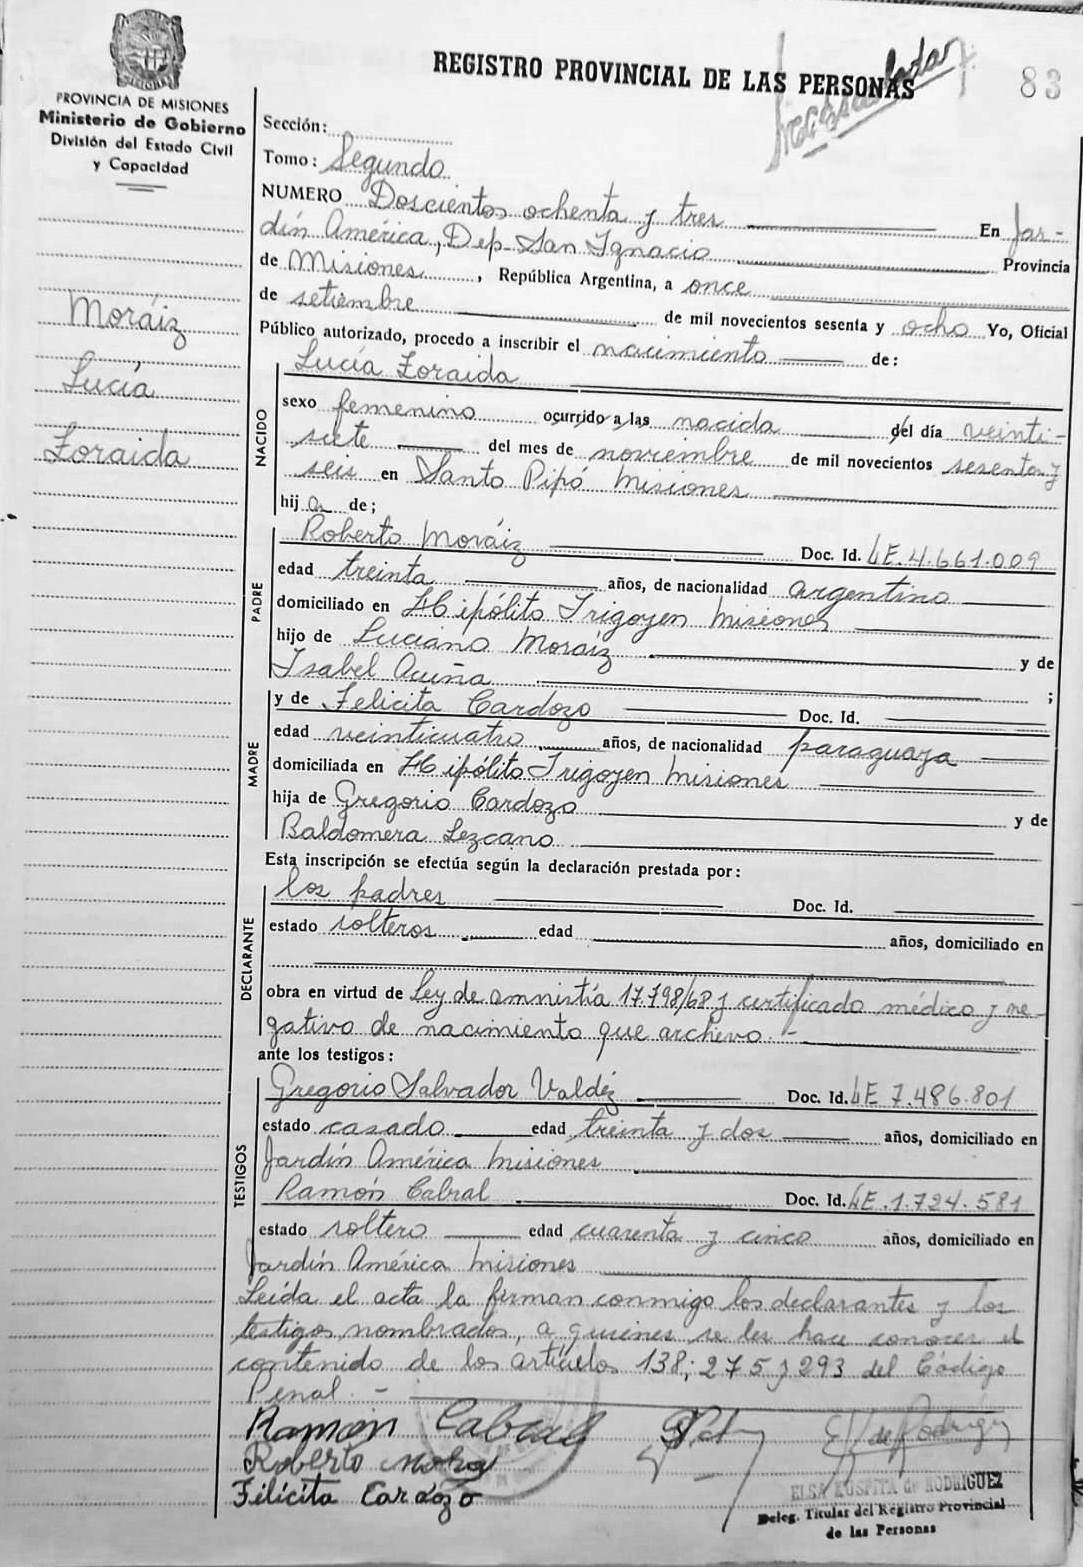 REGISTRO PROVINCIAL DE LAS PERSONAS
83
PROVINCIA DE MISIONES
Ministerio de Gobierno
División del Estado Civil
y Capacidad
Moráiz
Lucía
Zoraida
Sección:
Tomo: Segundo
NUMERO Doscientos ochenta y tres En Jar-
dín América, Dep. San Ignacio Provincia
de Misiones, República Argentina, a once
de setiembre de mil novecientos sesenta y ocho Yo, Oficial
Público autorizado, procedo a inscribir el nacimiento de:
NACIDO
Lucía Zoraida
sexo femenino ocurrido a las nacida del día veinti-
siete del mes de noviembre de mil novecientos sesenta y
seis en Santo Pipó Misiones
hija de;
PADRE
Roberto Moráiz Doc. Id. LE. 4.661.009
edad treinta años, de nacionalidad argentino
domiciliado en Hipólito Irigoyen Misiones
hijo de Luciano Moráiz y de
Isabel Acuña ;
MADRE
y de Felicita Cardozo Doc. Id.
edad veinticuatro años, de nacionalidad paraguaya
domiciliada en Hipólito Irigoyen Misiones
hija de Gregorio Cardozo y de
Baldomera Lezcano
Esta inscripción se efectúa según la declaración prestada por:
DECLARANTE
los padres Doc. Id.
estado solteros edad años, domiciliado en
obra en virtud de Ley de amnistía 17.798/68 y certificado médico y ne-
gativo de nacimiento que archivo.-
ante los testigos:
TESTIGOS
Gregorio Salvador Valdéz Doc. Id. LE 7.486.801
estado casado edad treinta y dos años, domiciliado en
Jardín América Misiones
Ramón Cabral Doc. Id. LE. 1.724.581
estado soltero edad cuarenta y cinco años, domiciliado en
Jardín América Misiones
Leída el acta la firman conmigo los declarantes y los
testigos nombrados, a quienes se les hace conocer el
contenido de los artículos 138; 275 y 293 del Código
Penal.-
Ramón Cabral
Roberto
Felicita Cardozo
ELSA de RODRIGUEZ
Deleg. Titular del Registro Provincial
de las Personas